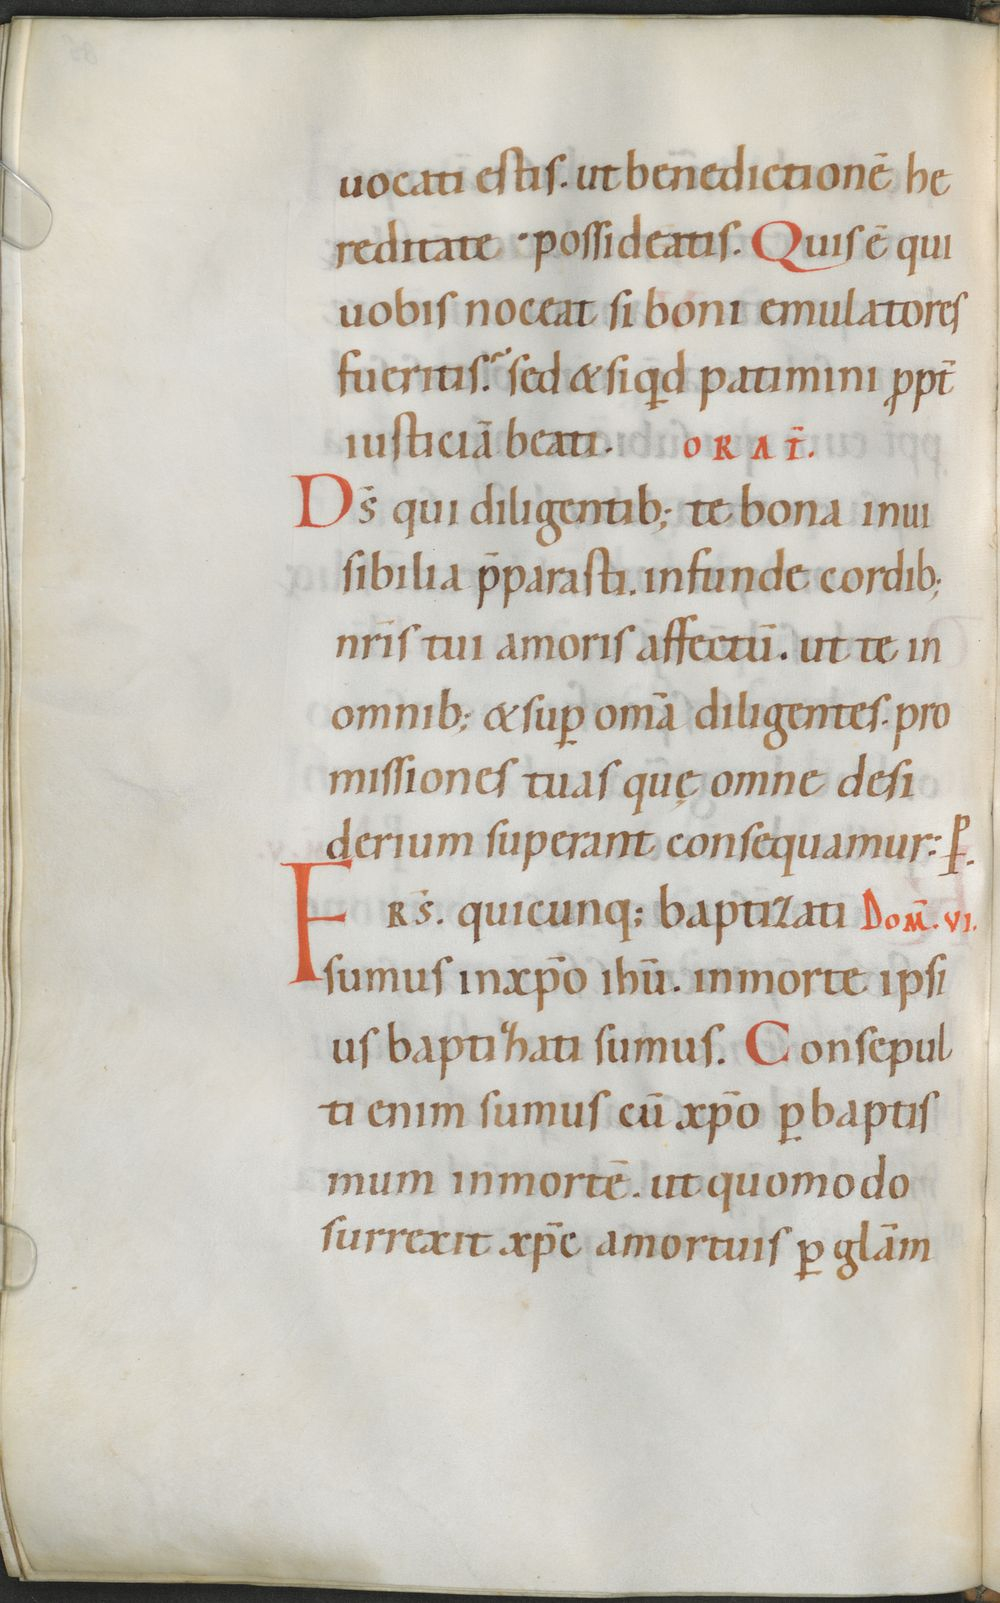 uocati estis. ut ben̄edictionē he
reditate possideatis. Quis ē qui
uobis noceat si boni emulatores
fueritis? sed & siq̄d patimini ꝓpt̄
iusticiā beati. ORAT̄.
Ds̄ qui diligentib; te bona inui
sibilia p̄parasti. infunde cordib;
nr̄is tui amoris affectū. ut te in
omnib; & suꝑ om̄a diligentes. pro
missiones tuas qūę omne desi
derium superant consequamur: P.
FRS̄. quicunq; baptizati DOM̄. VI.
sumus in xp̄o ihū. in morte ipsi
us baptihati sumus. Consepul
ti enim sumus cū xp̄o ꝑ baptis
mum in mortē. ut quomodo
surrexit xp̄c a mortuis ꝑ glām